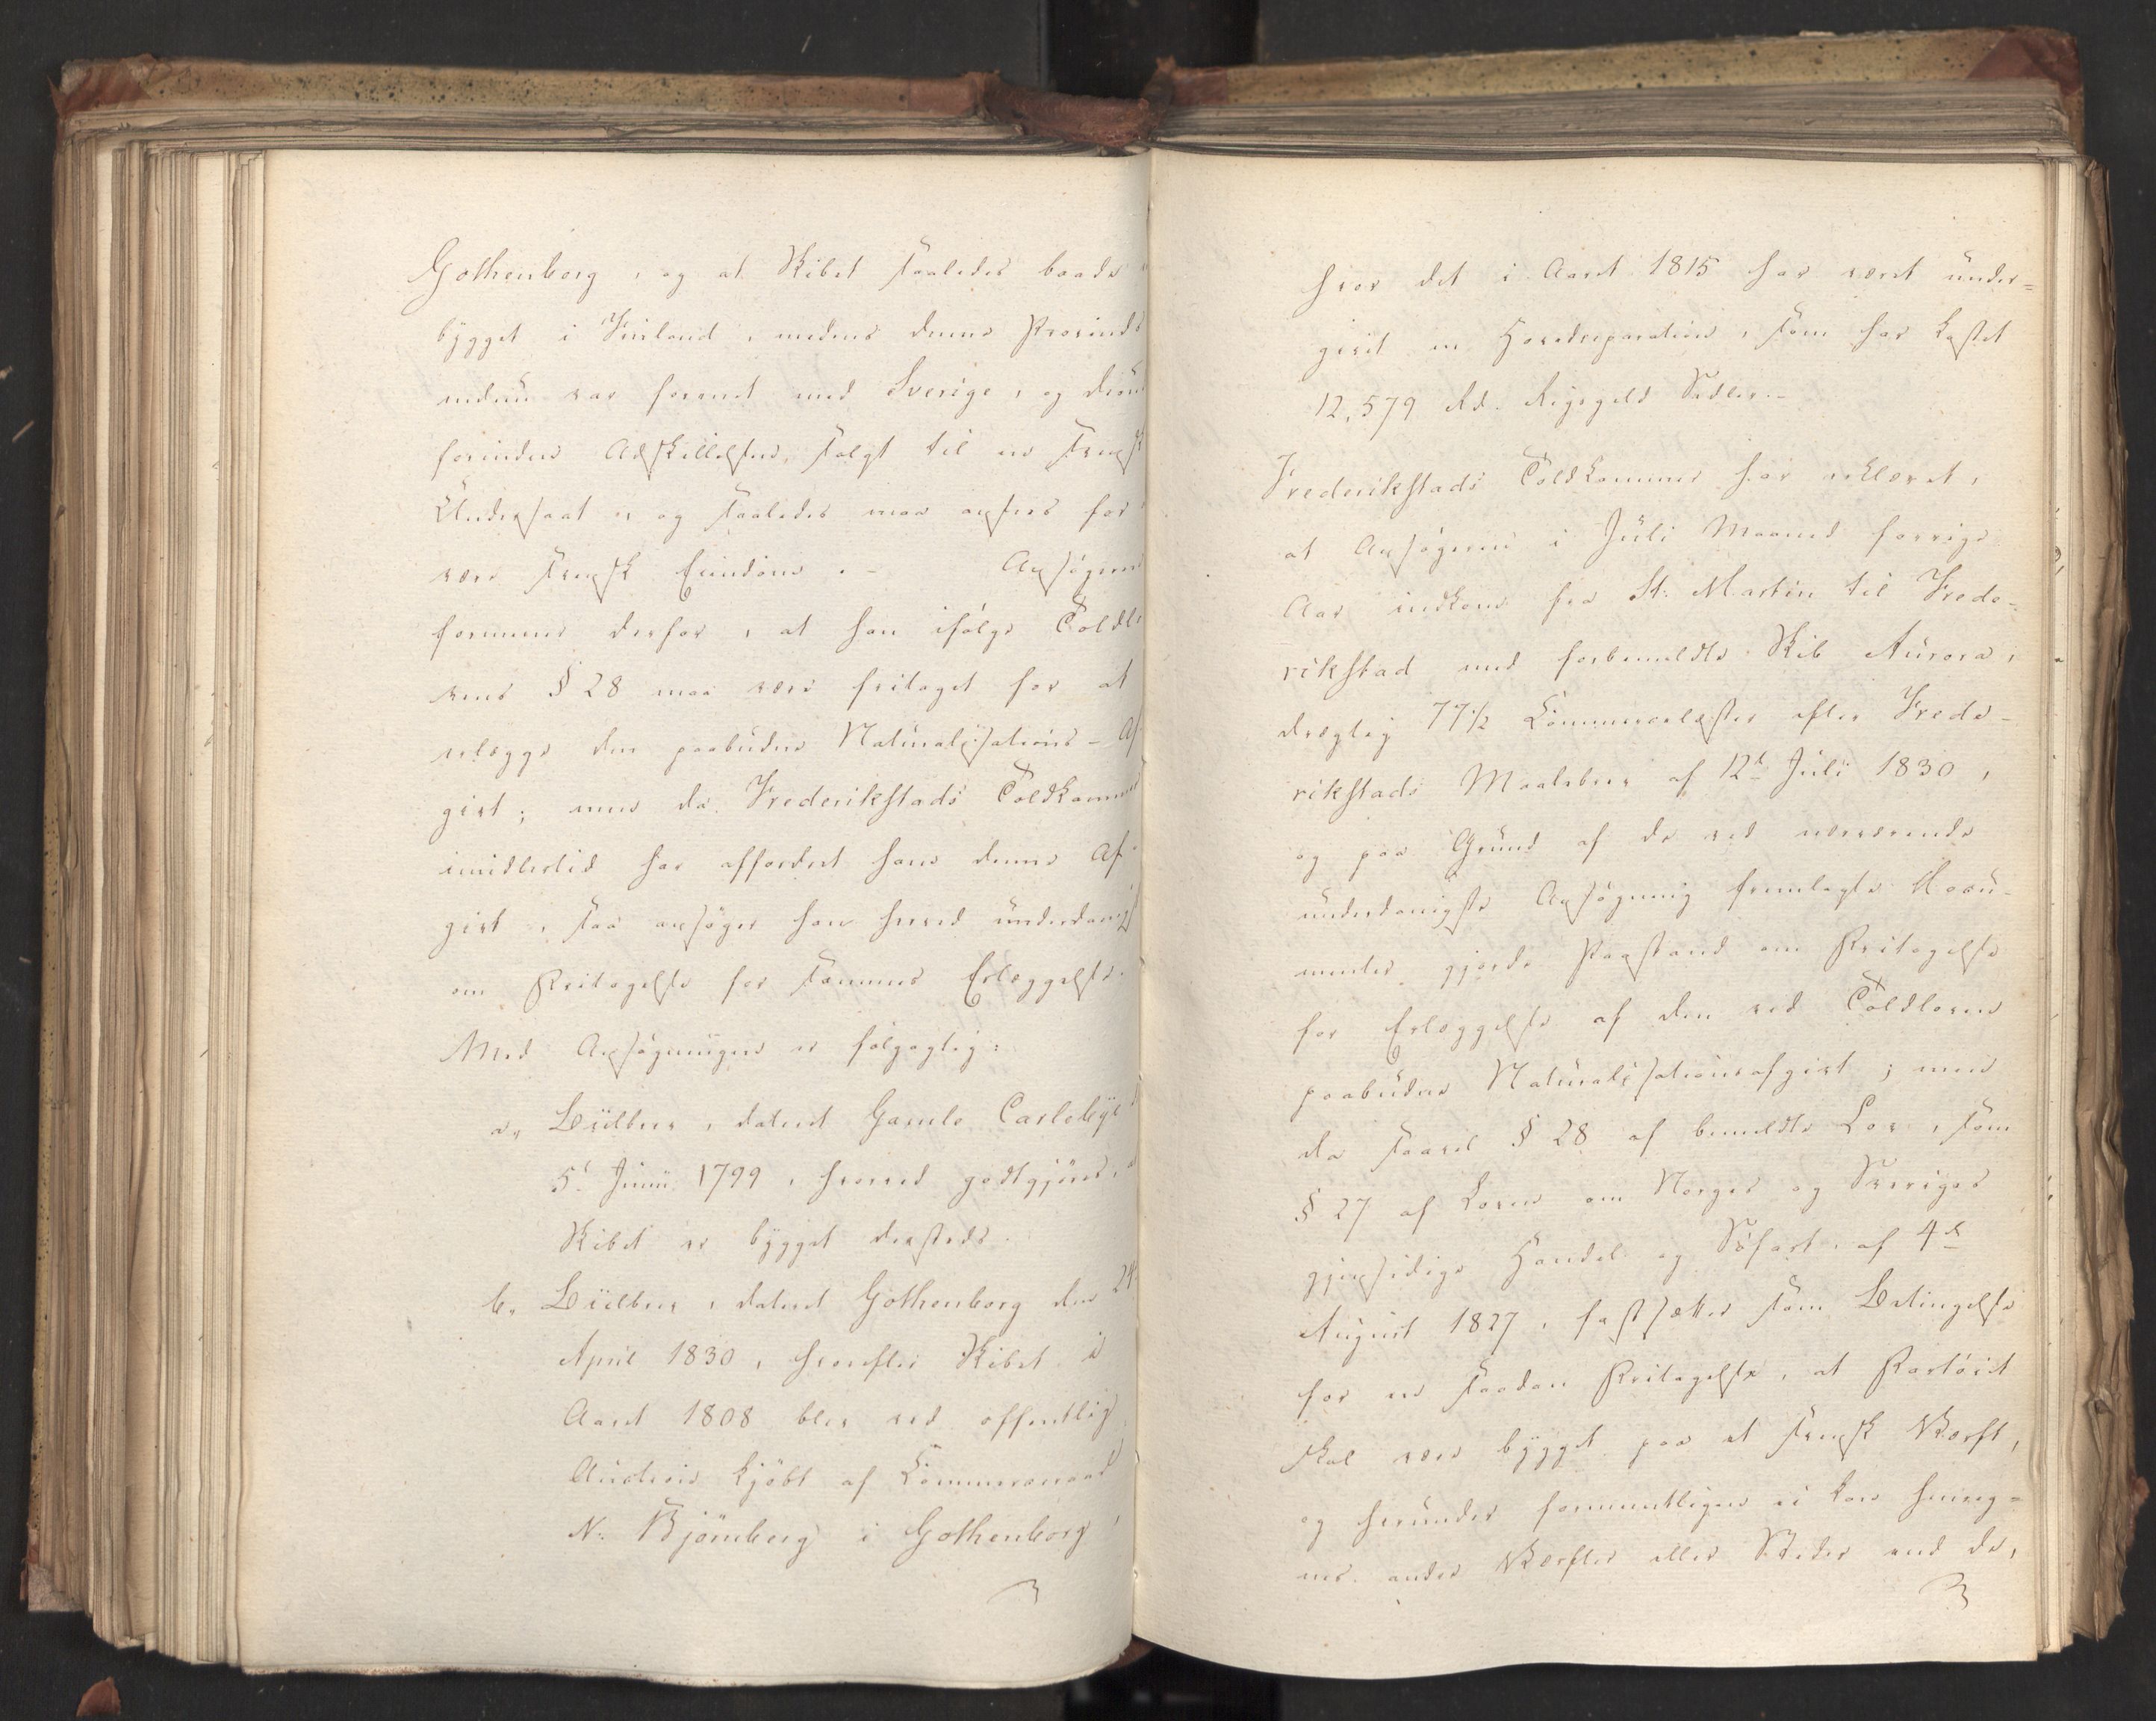 Gothenborg, og at Skibet saaledes baade
bygget i Finland, medens denne Provinds
endnu var forenet med Sverige, og
forinden Adskillelsen solgt til en svensk
Undersaat og saaledes maa ansees for
være svensk Eiendom. – Ansøgeren
formener derfor, at han ifølge Toldlo
vens § 28 maa være fritaget for at
erlægge den paabudne Naturalisations-Af
givt; men da Frederikstads Toldkammer
imidlertid har affordret ham denne Af
givt, saa ansøger han herved underdanigst
om Fritagelse for sammes Erlæggelse.
Med Ansøgningen er følgagtig:
a, Biilbrev, dateret Gamle Carleby
5t Junii 1799, hvorved godtgjøres,
Skibet er bygget dersteds.
b, Biilbrev, dateret Gothenborg den 24
April 1830, hvorefter Skibet i
Aaret 1808 blev ved offentlig
Auction kjøbt af Commerceraad
N. Björnberg i Gothenborg,
hvor det i Aaret 1815 har været under=
givet en Hovedreparation, som har kostet
12,579 Rd. Rigsgeld Sedler.–
Frederikstads Toldkammer har erklæret,
at Ansøgeren i Juli Maaned forrige
Aar indkom fra St. Martin til Frede=
rikstad med forbemeldte Skib Aurora,
drægtig 77½ Commercelæster efter Frede-
rikstads Maalebrev af 12t Juli 1830,
og paa Grund af de ved nærværende
underdanigste Ansøgning fremlagte Docu-
menter gjorde Paastand om Fritagelse
for Erlæggelse af den ved Toldloven
paabudne Naturalisationsafgivt; men
da saavel § 28 af bemeldte Lov, som
§ 27 af Loven om Norges og Sverriges
gjensidige Handel og Søfart af 4de
August 1827, fastsætter som Betingelse
for en saadan Fritagelse, at Fartøiet
skal være bygget paa et svensk Værft,
og herunder formeentligen ei kan henreg=
nes andre Værfter eller Steder end de,